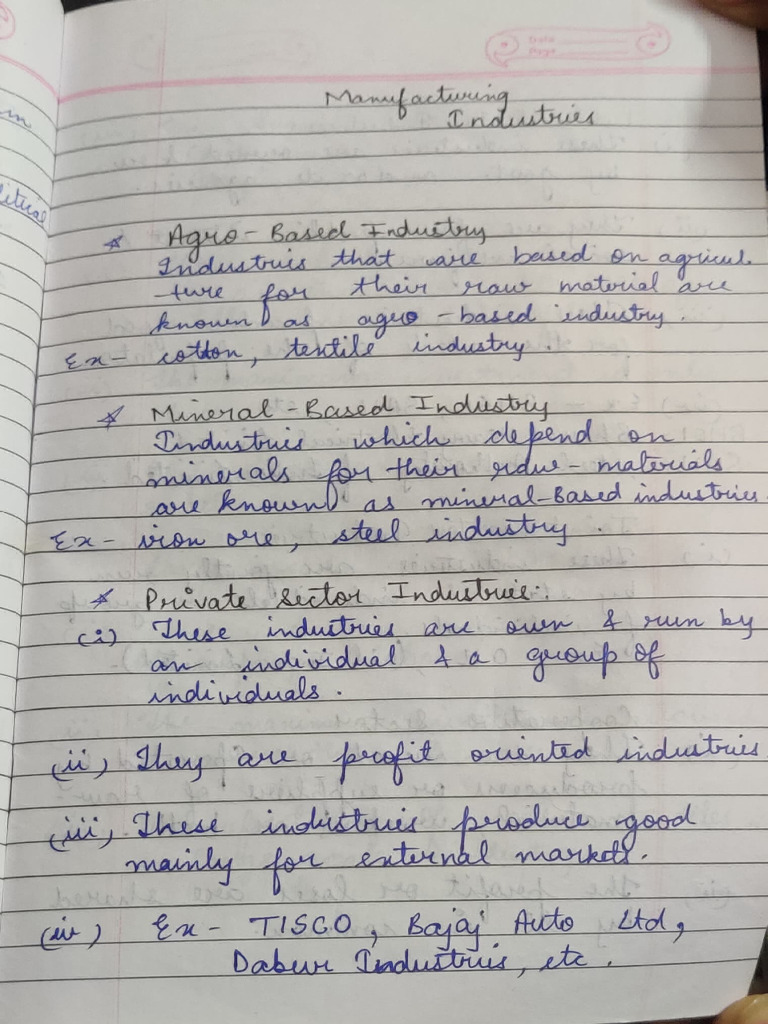 Date
Page
in
litical
Manufacturing
Industries
* Agro-Based Industry
Industries that are based on agricul-
-ture for their raw material are
known as agro-based industry.
Ex- cotton, textile industry.
* Mineral-Based Industry
Industries which depend on
minerals for their raw-materials
are known as mineral-Based industries.
Ex- iron ore, steel industry.
* Private Sector Industries:
(i) These industries are own & run by
an individual & a group of
individuals.
(ii) They are profit oriented industries
(iii) These industries produce good
mainly for external markets.
(iv) Ex- TISCO, Bajaj Auto Ltd,
Dabur Industries, etc.